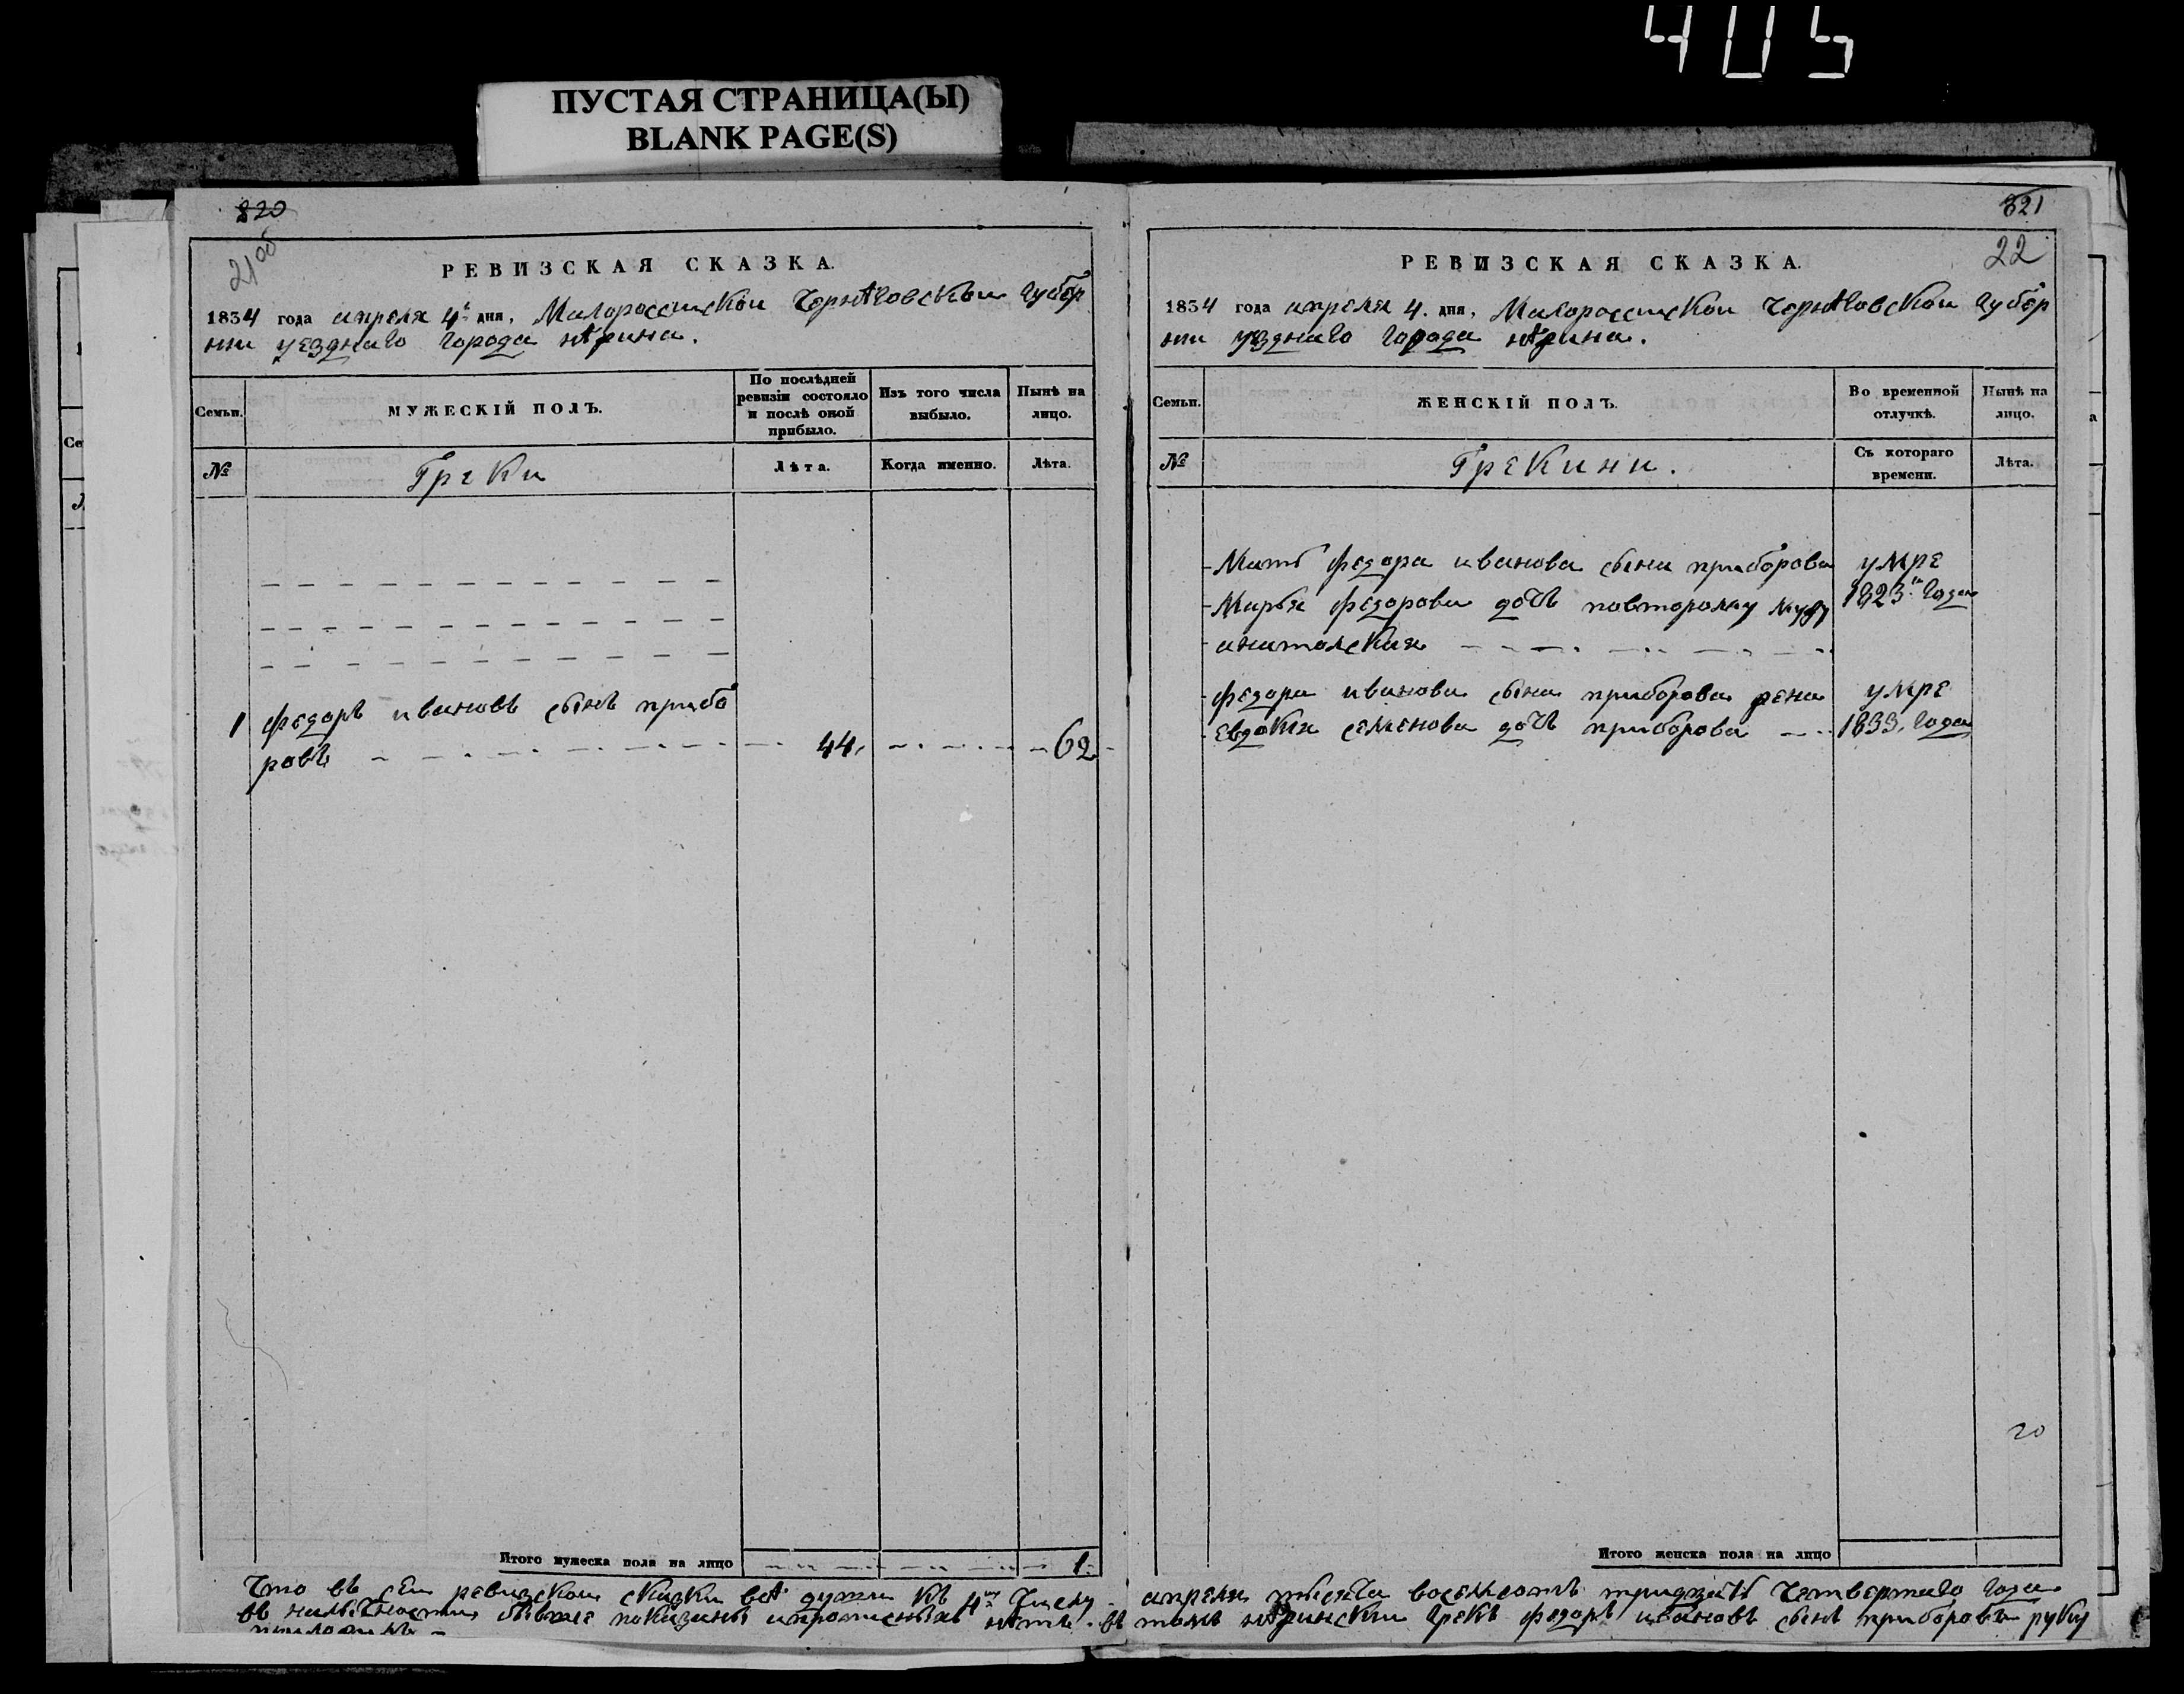 405
ПУСТАЯ СТРАНИЦА(Ы)
BLANK PAGE(S)
820
21об
РЕВИЗСКАЯ СКАЗКА.
1834 года апреля 4. дня, Малороссийской Чернѣговской губер
нии уезднаго города нѣжина.
Семьи.
МУЖЕСКІЙ ПОЛЪ.
По послѣдней ревизіи состояло и послѣ оной прибыло.
Изъ того числа выбыло.
Нынѣ на лицо.
№
Греки
Лѣта.
Когда именно.
Лѣта.
1 федоръ ивановъ сынъ прибо
ровъ 44. 62
Итого мужеска пола на лицо 1.
821
22
РЕВИЗСКАЯ СКАЗКА.
1834 года апреля 4. дня, Малороссийской Чернѣговской губер
нии уезднаго города нѣжина.
Семьи.
ЖЕНСКІЙ ПОЛЪ.
Во временной отлучкѣ.
Нынѣ на лицо.
№
Грекини.
Съ котораго времени.
Лѣта.
Мать федора иванова сына приборова умре
Марья федорова дочъ повторому мужу 1823 года
федора иванова сына приборова жена умре
Евдокия семенова дочъ приборова 1833. года
20
Итого женска пола на лицо
Что въ сей ревизской сказки всѣ души къ 4му числу апреля месяца восемсотъ тридцать четвертаго года
въ наличности бывшие показаны и прописныхъ нѣтъ. въ томъ нѣжинский грекъ федоръ ивановъ сынъ приборовъ руку
приложилъ